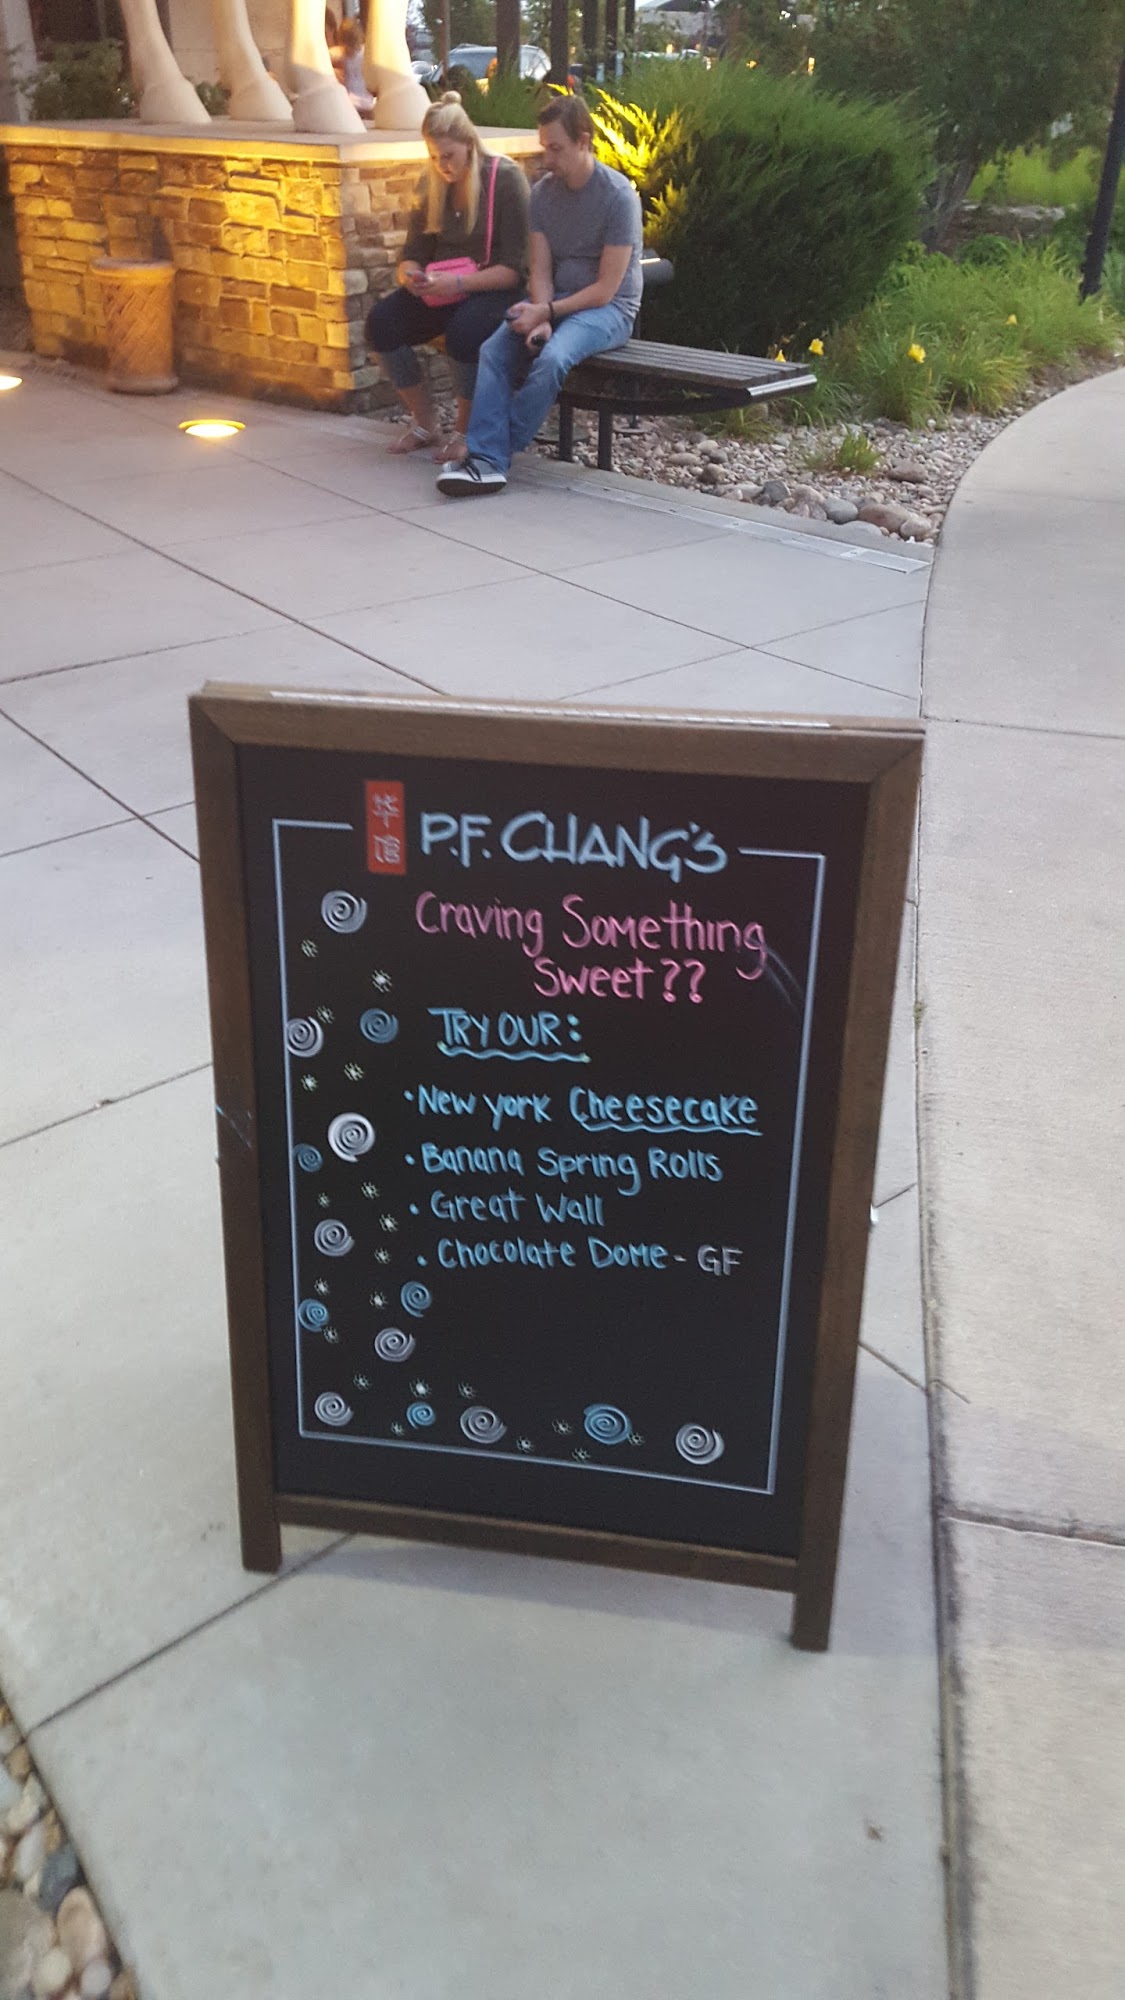 华馆 P.F. CHANG'S
Craving Something
Sweet??
TRY OUR:
• New York Cheesecake
• Banana Spring Rolls
• Great Wall
• Chocolate Dome - GF